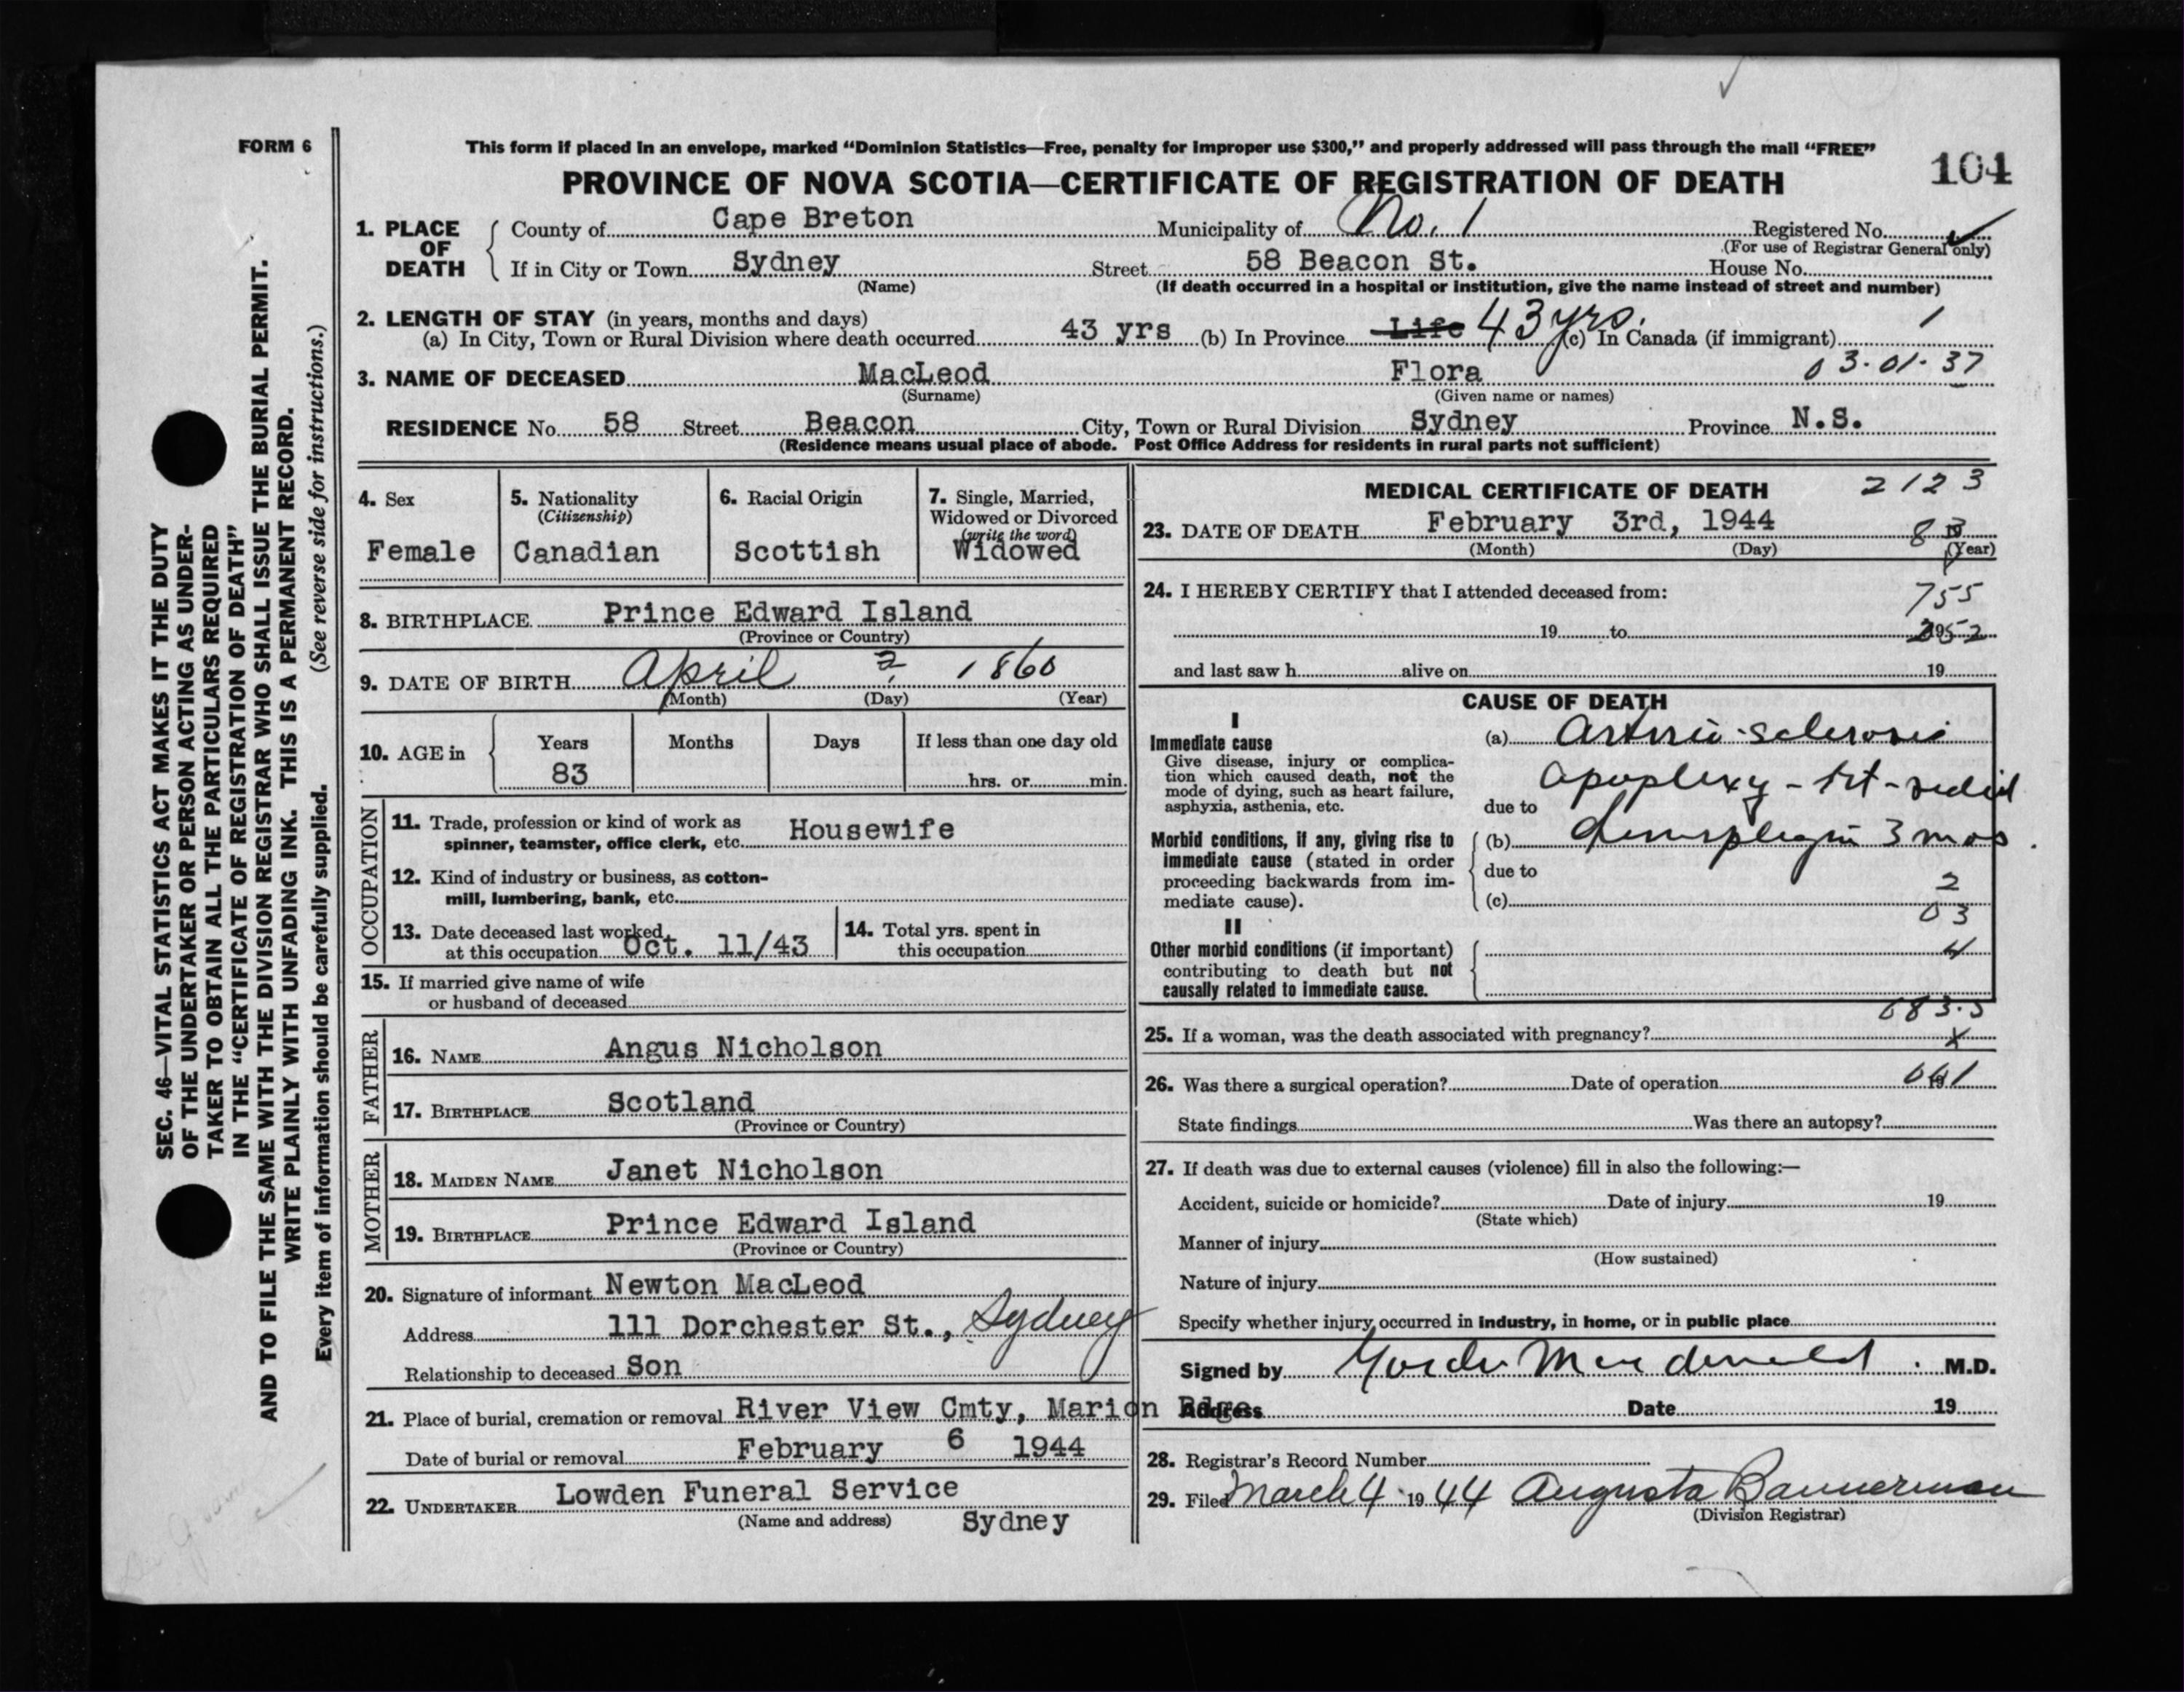 FORM 6
This form if placed in an envelope, marked "Dominion Statistics—Free, penalty for improper use $300," and properly addressed will pass through the mail "FREE"
PROVINCE OF NOVA SCOTIA—CERTIFICATE OF REGISTRATION OF DEATH
104
1. PLACE OF DEATH
County of Cape Breton Municipality of No. 1 Registered No.
(For use of Registrar General only)
If in City or Town Sydney Street 58 Beacon St. House No.
(Name) (If death occurred in a hospital or institution, give the name instead of street and number)
2. LENGTH OF STAY (in years, months and days)
(a) In City, Town or Rural Division where death occurred 43 yrs (b) In Province Life 43 yrs. (c) In Canada (if immigrant) 1
3. NAME OF DECEASED MacLeod Flora 03-01-37
(Surname) (Given name or names)
RESIDENCE No. 58 Street Beacon City, Town or Rural Division Sydney Province N.S.
(Residence means usual place of abode. Post Office Address for residents in rural parts not sufficient)
SEC. 46—VITAL STATISTICS ACT MAKES IT THE DUTY
OF THE UNDERTAKER OR PERSON ACTING AS UNDER-
TAKER TO OBTAIN ALL THE PARTICULARS REQUIRED
IN THE "CERTIFICATE OF REGISTRATION OF DEATH"
AND TO FILE THE SAME WITH THE DIVISION REGISTRAR WHO SHALL ISSUE THE BURIAL PERMIT.
WRITE PLAINLY WITH UNFADING INK. THIS IS A PERMANENT RECORD.
Every item of information should be carefully supplied. (See reverse side for instructions.)
4. Sex
Female
5. Nationality
(Citizenship)
Canadian
6. Racial Origin
Scottish
7. Single, Married,
Widowed or Divorced
(write the word)
Widowed
8. BIRTHPLACE Prince Edward Island
(Province or Country)
9. DATE OF BIRTH April ? 1860
(Month) (Day) (Year)
10. AGE in Years Months Days If less than one day old
83 hrs. or min.
OCCUPATION
11. Trade, profession or kind of work as
spinner, teamster, office clerk, etc. Housewife
12. Kind of industry or business, as cotton-
mill, lumbering, bank, etc.
13. Date deceased last worked
at this occupation Oct. 11/43
14. Total yrs. spent in
this occupation
15. If married give name of wife
or husband of deceased
FATHER
16. NAME Angus Nicholson
17. BIRTHPLACE Scotland
(Province or Country)
MOTHER
18. MAIDEN NAME Janet Nicholson
19. BIRTHPLACE Prince Edward Island
(Province or Country)
20. Signature of informant Newton MacLeod
Address 111 Dorchester St., Sydney
Relationship to deceased Son
21. Place of burial, cremation or removal River View Cmty, Marion Bdge
Date of burial or removal February 6 1944
22. UNDERTAKER Lowden Funeral Service
(Name and address) Sydney
MEDICAL CERTIFICATE OF DEATH 2123
23. DATE OF DEATH February 3rd, 1944 83
(Month) (Day) (Year)
24. I HEREBY CERTIFY that I attended deceased from:
755
19 to 19
and last saw h alive on 19
CAUSE OF DEATH
I
Immediate cause
Give disease, injury or complica-
tion which caused death, not the
mode of dying, such as heart failure,
asphyxia, asthenia, etc.
(a) Arterio-sclerosis
apoplexy - rt-sided
due to
Morbid conditions, if any, giving rise to
immediate cause (stated in order
proceeding backwards from im-
mediate cause).
(b) hemiplegia 3 mos.
due to
2
(c)
03
II
Other morbid conditions (if important)
contributing to death but not
causally related to immediate cause.
4
683.5
25. If a woman, was the death associated with pregnancy? x
26. Was there a surgical operation? Date of operation 19
State findings Was there an autopsy?
27. If death was due to external causes (violence) fill in also the following:—
Accident, suicide or homicide? Date of injury 19
(State which)
Manner of injury
(How sustained)
Nature of injury
Specify whether injury occurred in industry, in home, or in public place
Signed by Gordon Macdonald M.D.
Address Date 19
28. Registrar's Record Number
29. Filed March 4 1944 Augusta Bannerman
(Division Registrar)